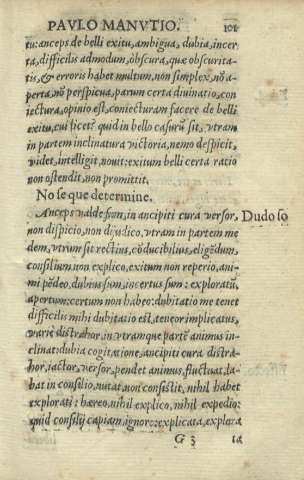 PAVLO MANVTIO. 101
tu: anceps de belli exitu, ambigua, dubia, incer
ta, difficilis admodum, obscura, quæ obscurita-
tis, & erroris habet multum, non simplex, nõ a-
perta, nõ perspicua, parum certa diuinatio, con
iectura, opinio est, coniecturam facere de belli
exitu, cui licet? quid in bello casurũ sit, vtram
in partem inclinatura victoria, nemo despicit,
videt, intelligit, nouit: exitum belli certa ratio
non ostendit, non promittit.
No se que determine.
Anceps valde sum, in ancipiti cura versor, Dudoso
non dispicio, non dijudico, vtram in partem me
dem, vtrum sit rectius, cõducibilius, eligẽdum,
consilium non explico, exitum non reperio, ani-
mi põdeo, dubius sum, incertus sum: exploratũ,
apertum: certum non habeo: dubitatio me tenet
difficilis mihi dubitatio est, teneor implicatus,
variè distrahor, in vtramque partẽ animus in-
clinat: dubia cogitatione, ancipiti cura distra-
hor, iactor, versor, pendet animus, fluctuat, la-
bat in consilio, nutat, non consistit, nihil habet
explorati: hæreo, nihil explico, nihil expedio:
quid consilij capiam, ignoro: explicata, explora
G 3 ta